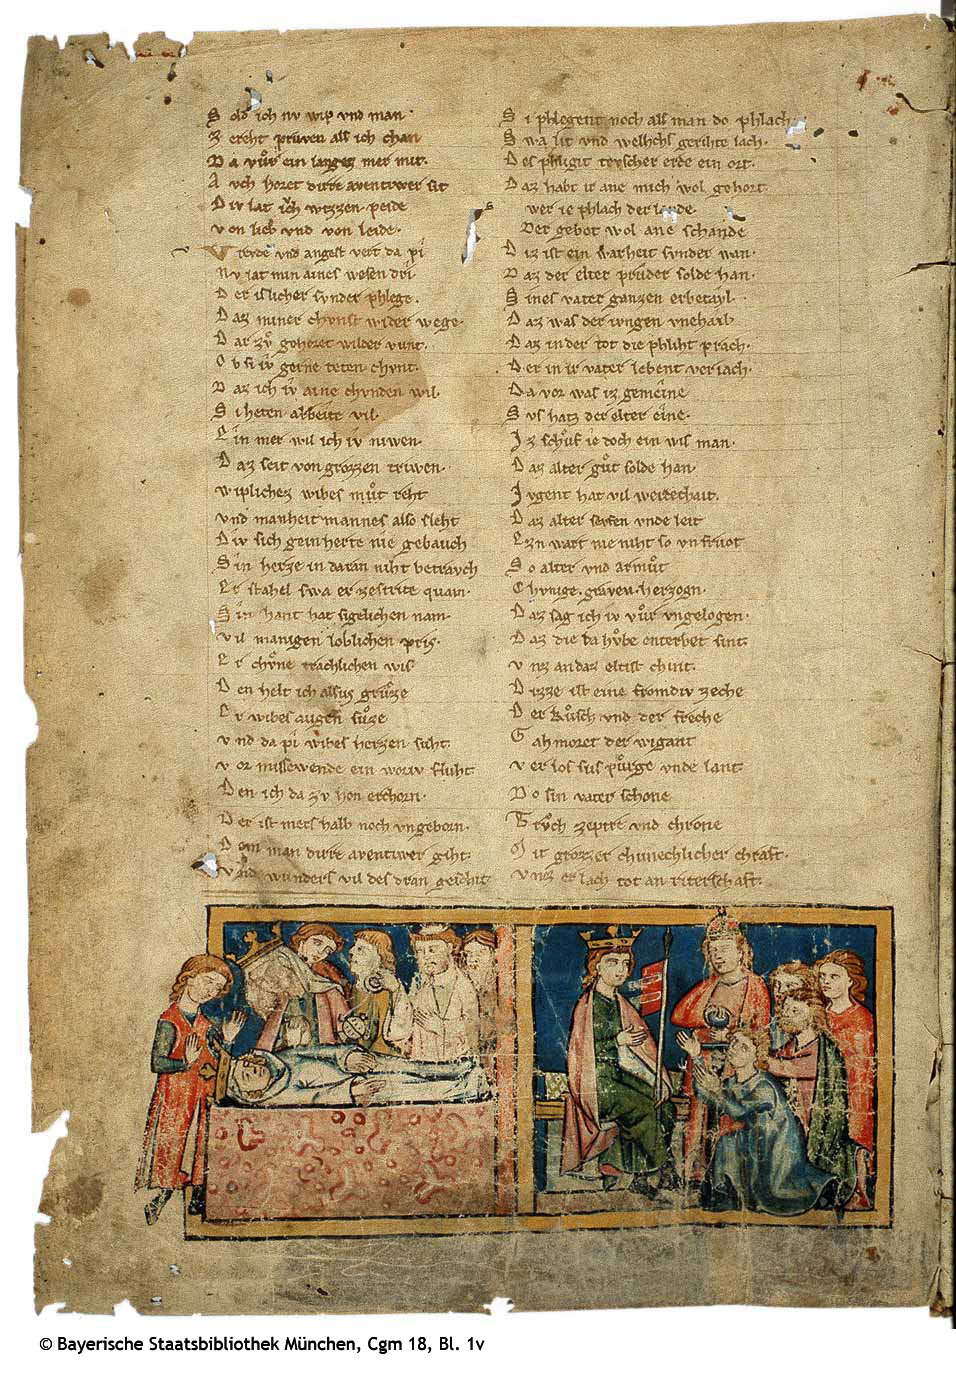 Sold ich nv wip vnd man
Zereht prüven als ich chan
Da vuͦr ein langez mer mit.
Avch horet dirre aventiwer sit
Div lat iͮch wizzen peide
von lieb vnd von leide.
Vrevde vnd angest vert da pi
Nv lat min aines wesen dri
Der islicher svnder phlege.
Daz miner chvnst wider wege.
Dar zvͦ gehoret wilder vunt.
Ob si iv gerne teten chvnt.
Daz ich iv aine chvnden wil.
Si heten arbeite vil.
Ein mer wil ich iv niwen.
Daz seit von grozzen triwen.
wiplichez wibes muͦt reht
vnd manheit mannes also sleht
Div sich gein herte nie gebauch
Sin herze in daran niht betrauch
Er stahel swa er ze strite quam.
Sin hant hat sigelichen nam.
vil manigen loblichen pris.
Er chuͦne trachlichen wis
Den helt ich alsus gruͦze
Er wibes augen suͦze
vnd da pi wibes herzen suht.
vor missewende ein wariv fluht
Den ich da zv hon erchorn.
Der ist mers halb noch vngeborn.
Dem man dirre aventiwer giht.
Vnd wunders vil des dran geschit
Si phlegent noch als man do phlach.
Swa lit vnd welhchs gerihte lach.
Des phligit tevscher erde ein ort.
Daz habt ir ane mich wol gehort
wer ie phlach der lande.
Der gebot wol ane schande
Diz ist ein warheit svnder wan.
Daz der elter prüder solde han.
Sines vater ganzen erbetayl.
Daz was der ivngen vnehail
Daz in der tot die phliht prach.
Der in ir vater lebent veriach.
Da vor was iz gemeine
Svs hatz der elter eine.
Iz schuͦf ie doch ein wis man.
Daz alter guͦt solde han.
Ivgent hat vil werdechait.
Daz alter sevfen vnde leit
Ezn wart nie niht so vnfruot
So alter vnd armuͦt
Chvnige. graven. herzogn.
Daz sag ich iv vuͦr vngelogen.
Daz die da huͦbe enterbet sint.
vnz an daz eltist chint.
Dizze ist eine fromdiv zeche
Der kuͦsch vnd der freche
Gahmoret der wigant
verlos sus puͦrge vnde lant.
Do sin vater schone
Truͦch zeptre vnd chrone
Mit grozzer chunechlicher chraft.
Vnz er lach tot an riterschaft.
© Bayerische Staatsbibliothek München, Cgm 18, Bl. 1v